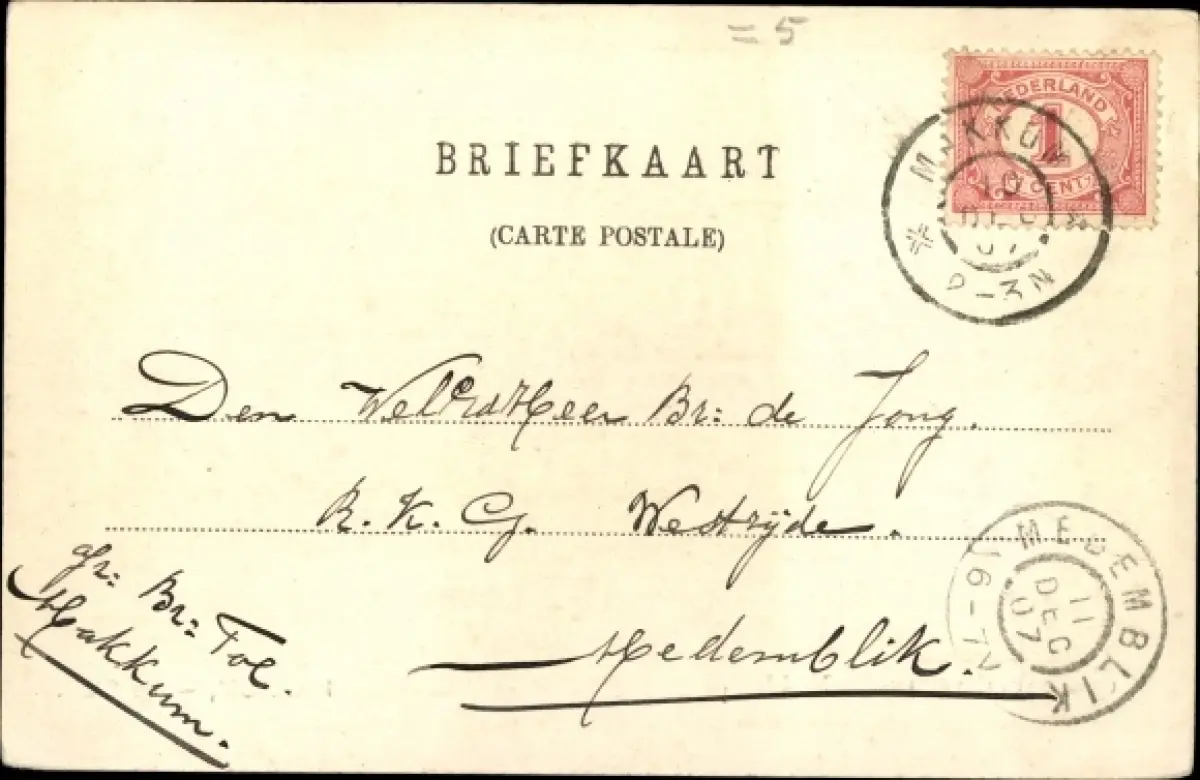 = 5
NEDERLAND
1
CENT
MAKKUM
10
DEC
07
2-3N
BRIEFKAART
(CARTE POSTALE)
Den WelErdHeer Br: de Jong.
R. K. G. Westzijde.
Medemblik.
afz: Br: Tol.
Makkum.
MEDEMBLIK
11
DEC
07
6-7V